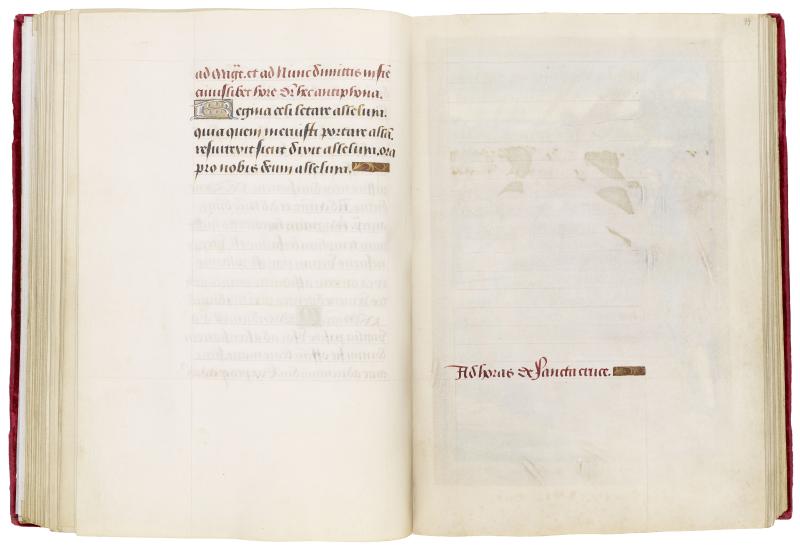 ad magt. et ad Nunc dimittis in fie
cuiuslibet hore dr hec antiphona.
Regina celi letare alleluya.
quia quem meruisti portare alla.
resurrexit sicut dixit alleluya. ora
pro nobis deum alleluya.
Ad horas de sancta cruce.